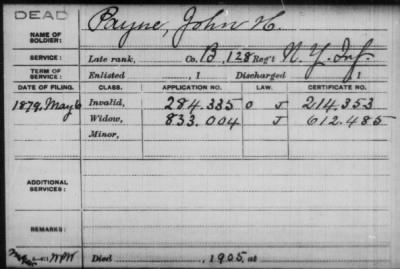 DEAD
NAME OF SOLDIER: Payne, John H.
SERVICE: Late rank, Co. B, 128 Reg't N.Y. Inf.
TERM OF SERVICE: Enlisted , 1 Discharged , 1
DATE OF FILING. CLASS. APPLICATION NO. LAW. CERTIFICATE NO.
1879, May 6 Invalid, 284.335 O J 214.353
Widow, 833.004 J 612.485
Minor,
ADDITIONAL SERVICES:
REMARKS:
Died 1905, at